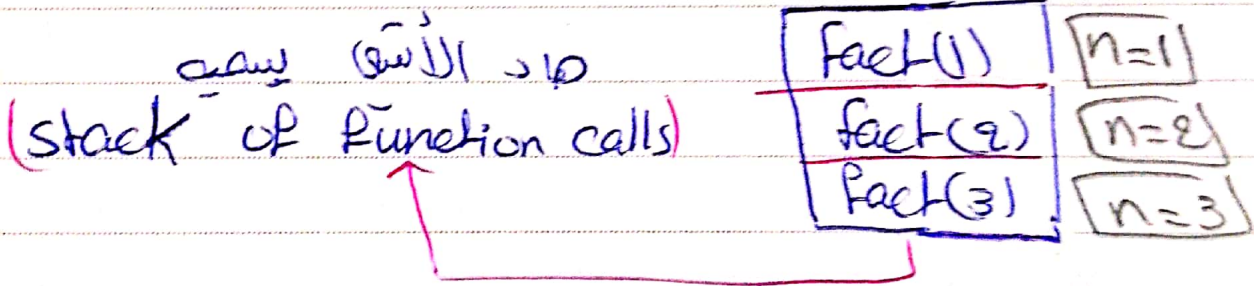 هاد الأشي يسميه
(stack of function calls)
fact(1) n=1
fact(2) n=2
fact(3) n=3